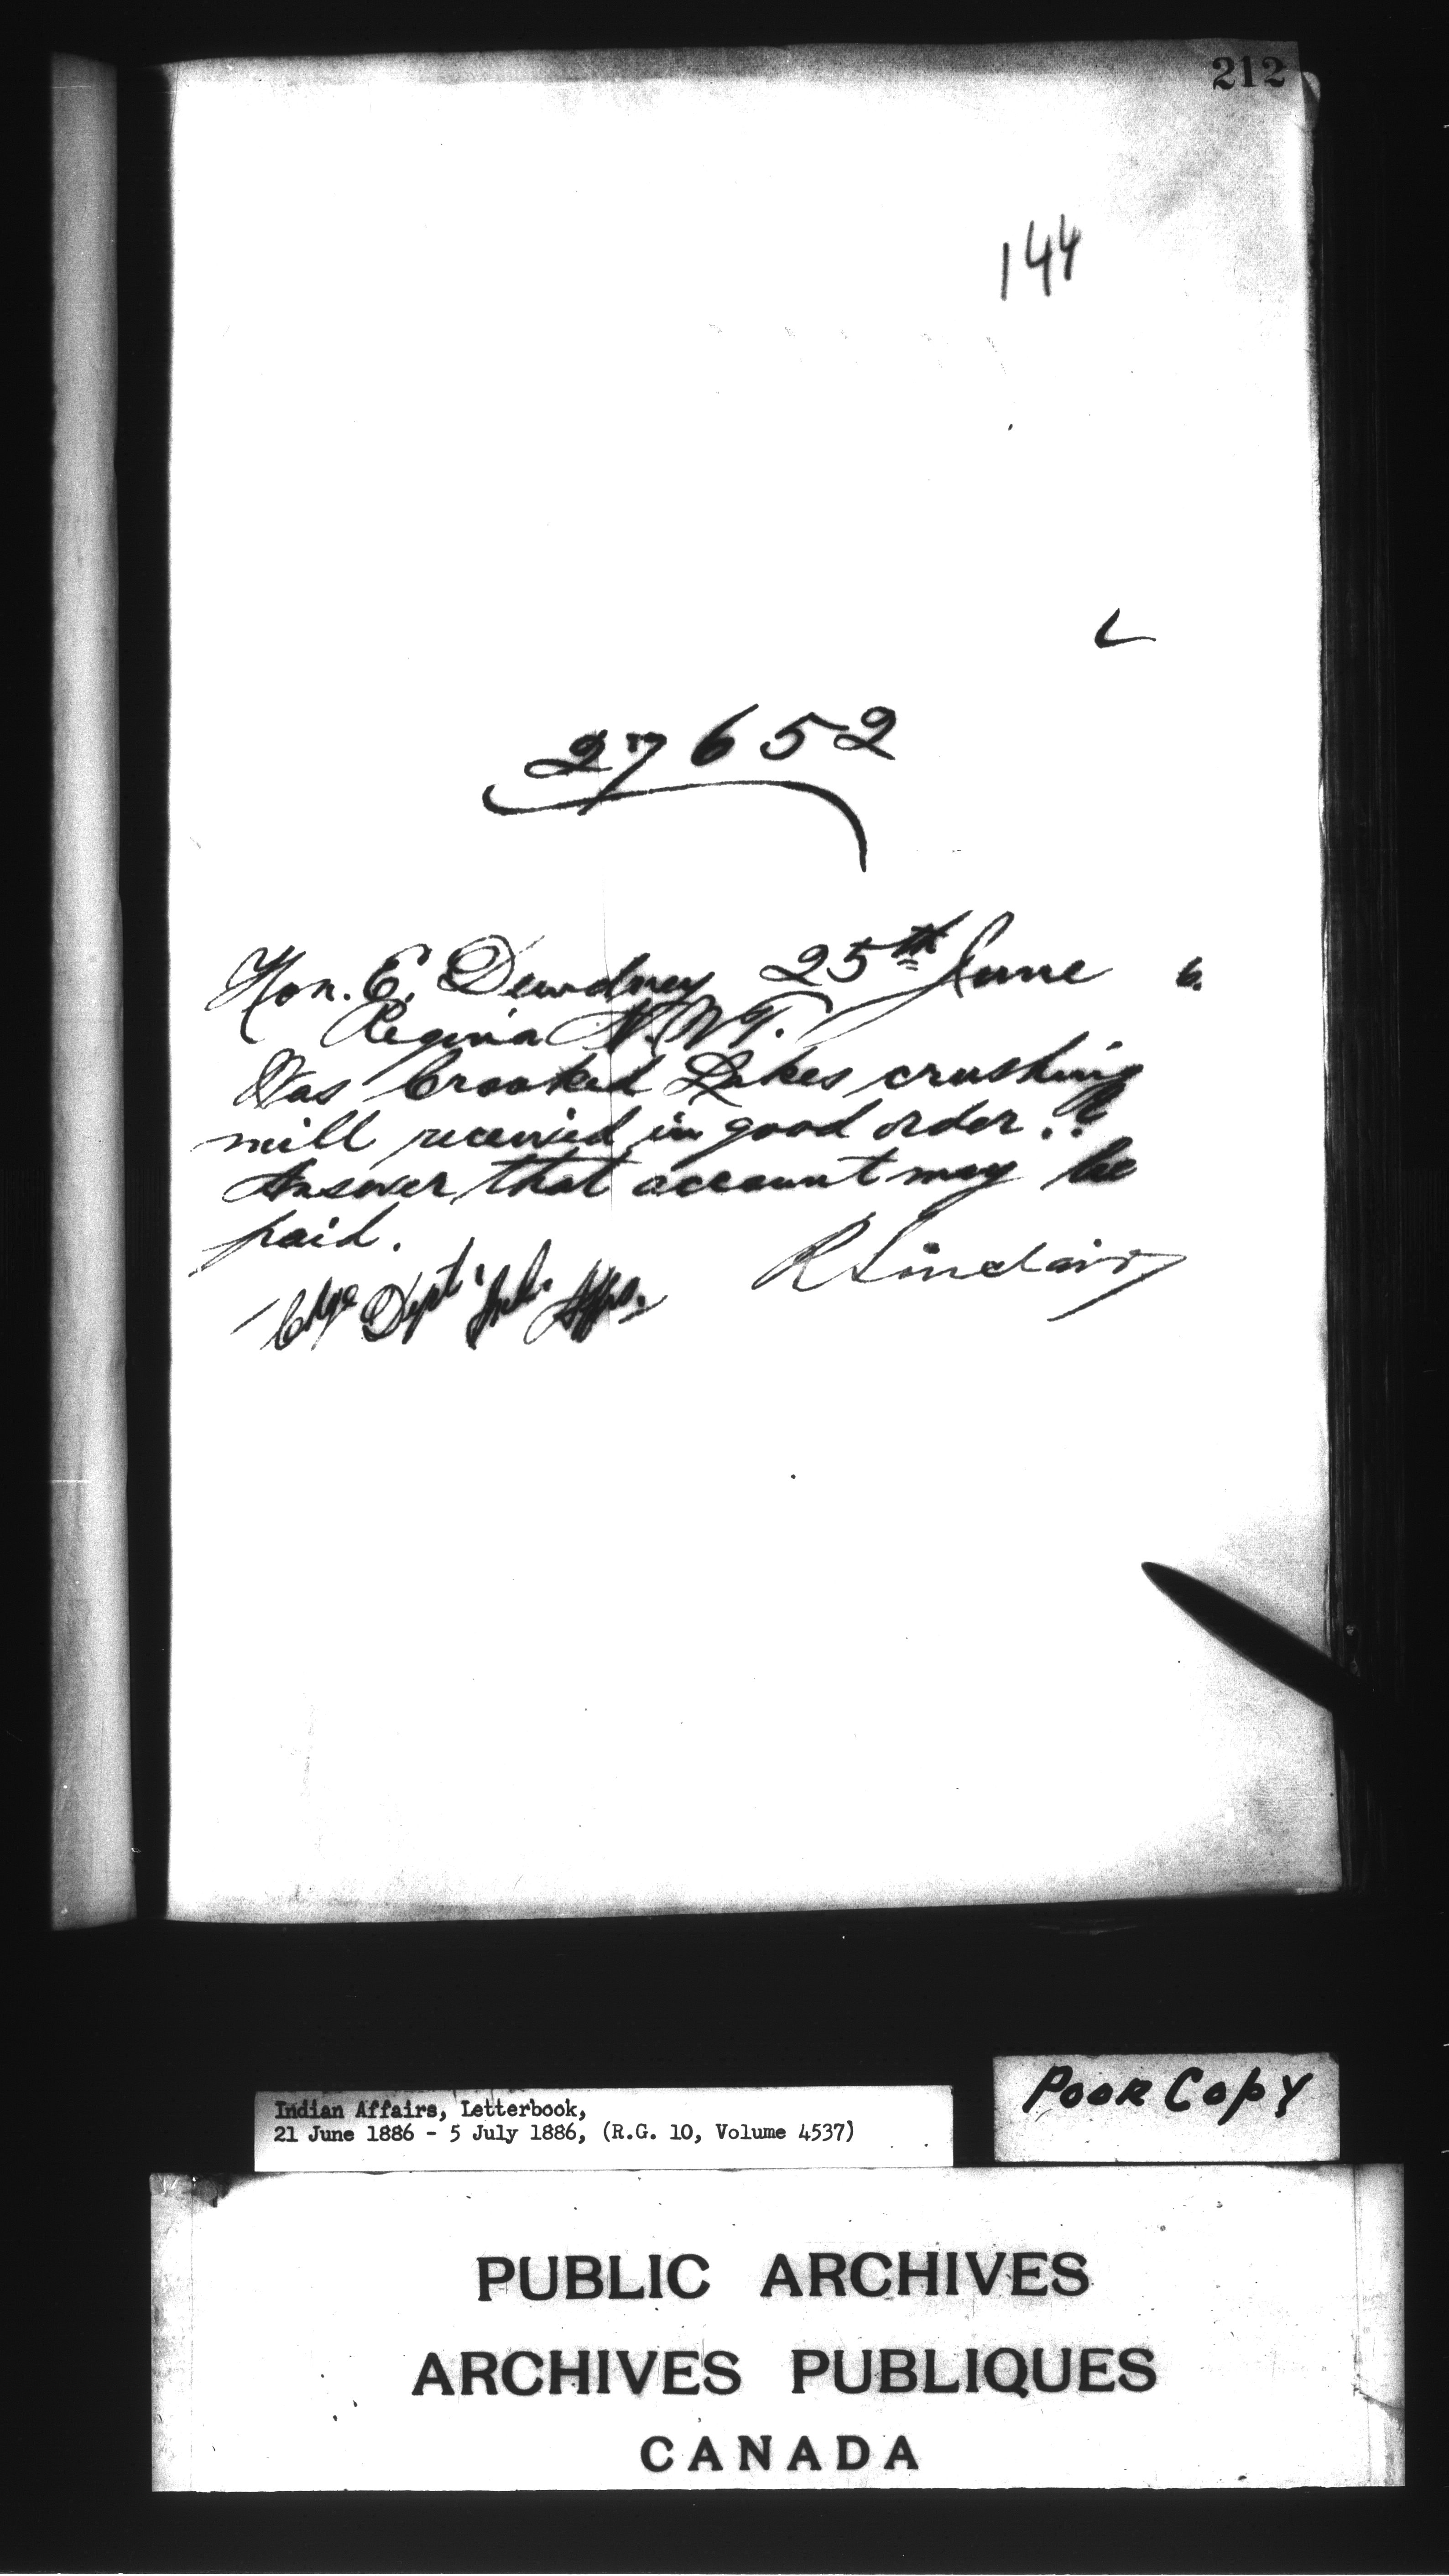 212
144
27652
Hon. E. Dewdney 25th June 6.
Regina N.W.T.
Was Crooked Lakes crushing
mill received in good order?
Answer that account may be
paid.
R Sinclair
Chge Dept Ind. Affrs.
Poor Copy
Indian Affairs, Letterbook,
21 June 1886 - 5 July 1886, (R.G. 10, Volume 4537)
PUBLIC ARCHIVES
ARCHIVES PUBLIQUES
CANADA